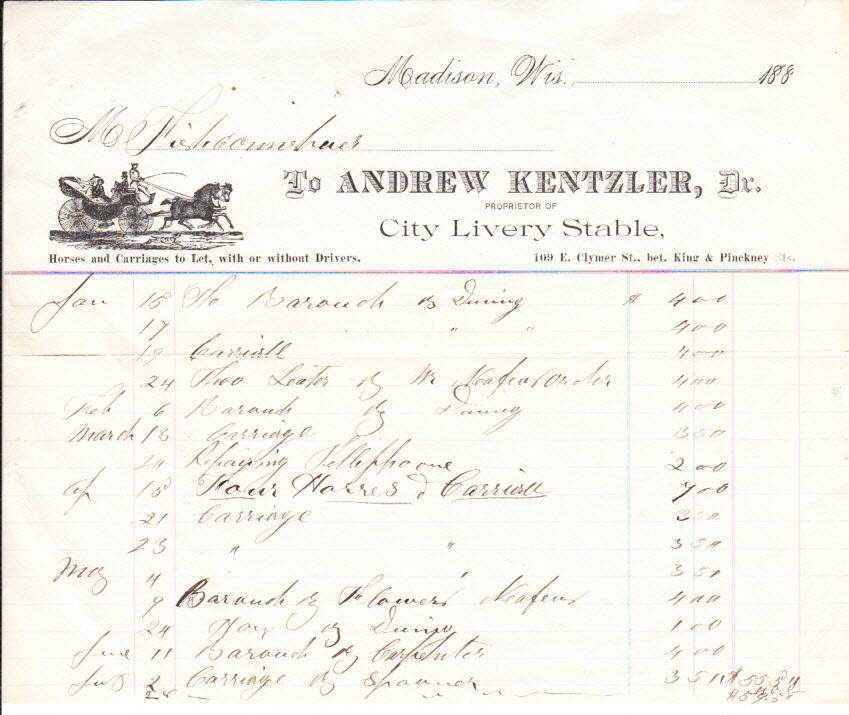 Madison, Wis., 188
M
To ANDREW KENTZLER, Dr.
PROPRIETOR OF
City Livery Stable,
Horses and Carriages to Let, with or without Drivers.
109 E. Clymer St., bet. King & Pinckney Sts.
Jan 15 To Barouch by Dining $ 4 00
17 " " 4 00
19 Carriall 4 00
24 Two Seater By Mr order 4 00
Feb 6 Barouch By Dining 4 00
March 13 Carriage 3 50
24 Repairing Tellephoone 2 00
Ap 15 Four Horses & Carriall 7 00
21 Carriage 3 50
23 " " 3 50
May 4 " 3 50
9 Barouch By Flowers 4 00
24 By Dining 1 00
June 11 Barouch By Carpenter 4 00
2 Carriage By Spooner 3 50